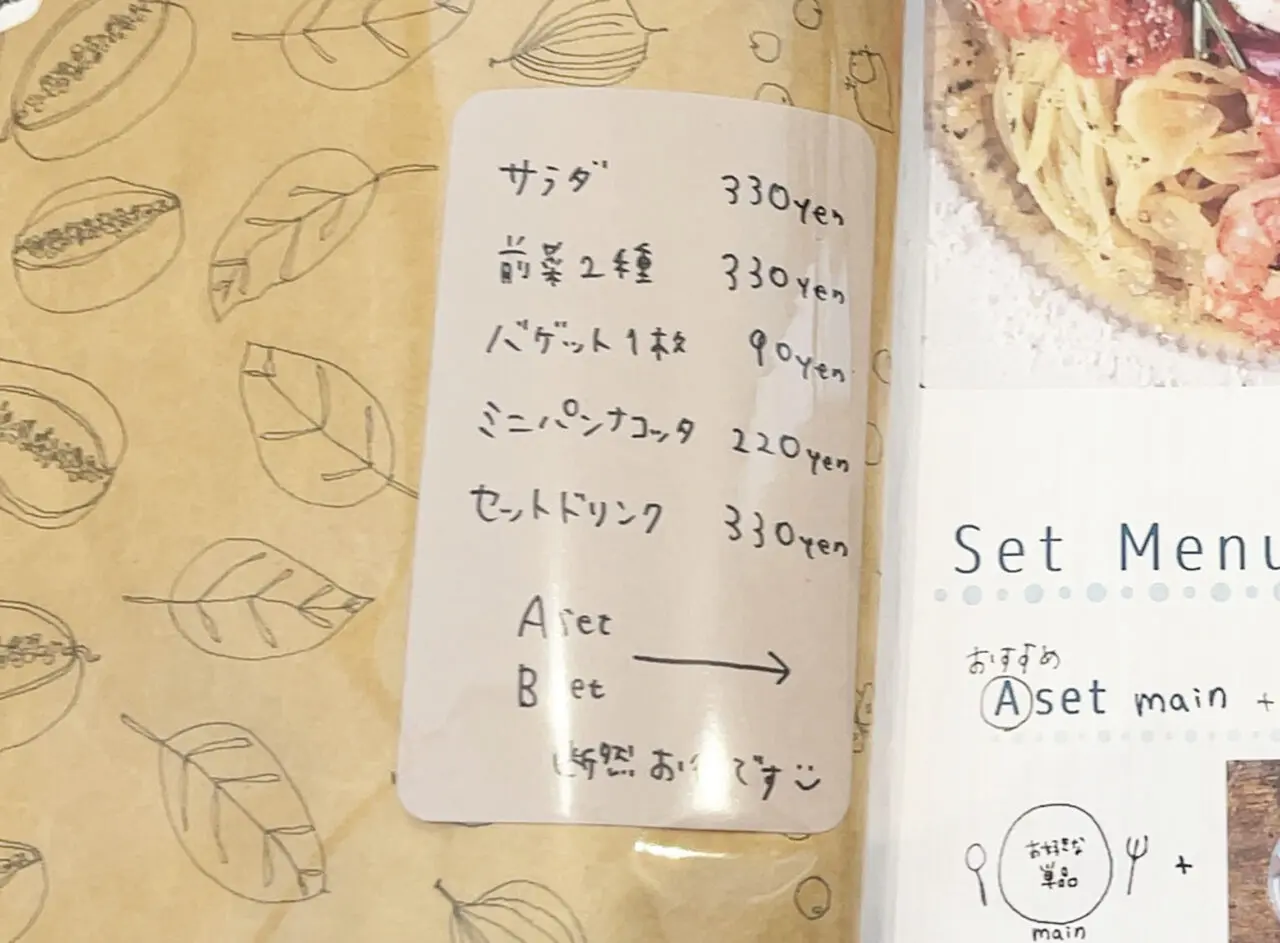 サラダ 330yen
前菜2種 330yen
バゲット1枚 90yen
ミニパンナコッタ 220yen
セットドリンク 330yen
A set
B set
→
断然 お得です
Set Menu
おすすめ
Aset main +
お好きな
単品
+
main